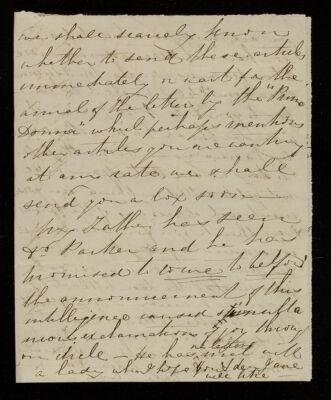 we shall scarcely know
whether to send these articles
immediately or wait for the
arrival of the letter by the "Prima
Donna" which perhaps mentions
other articles you are wanting
at any rate, we shall
send you a box soon
My Father has seen
Dr Parker and he has
promised to to
the announcement of this
intelligence caused
exclamations of joy through
our circle — He has met with
a lady who I hope you & dear Jane
will like